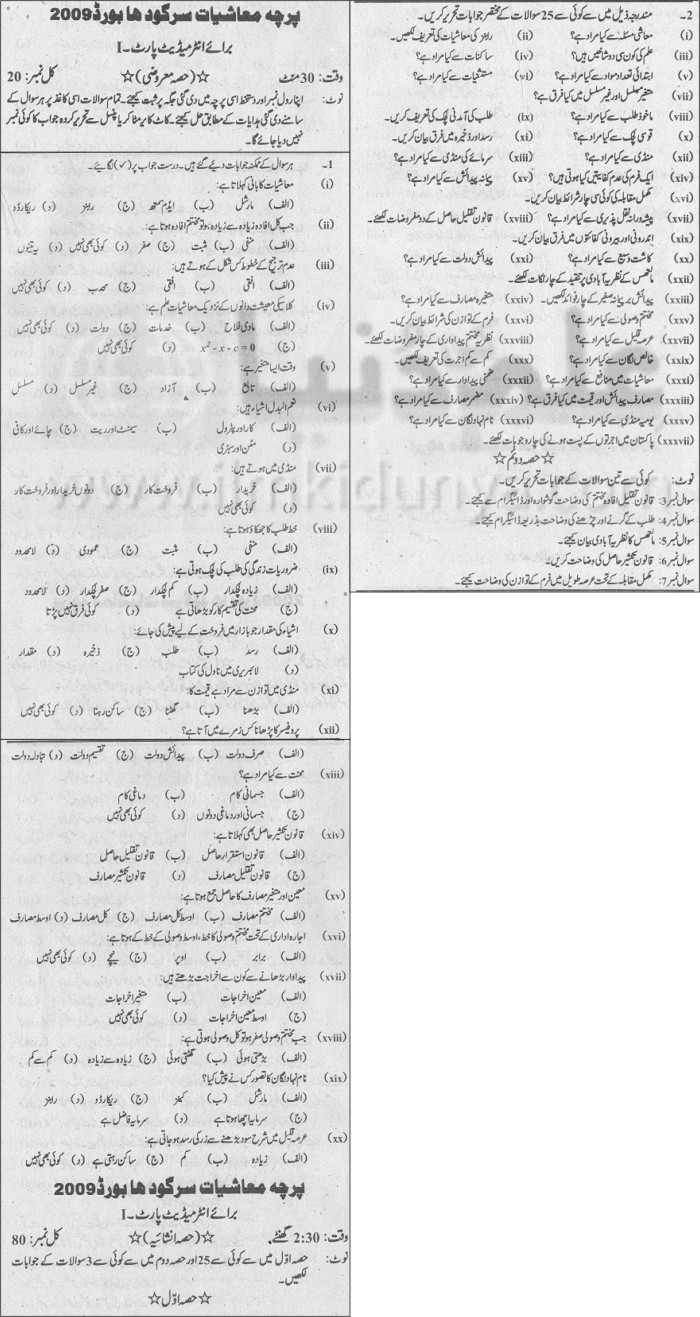 پرچہ معاشیات سرگودھا بورڈ 2009
برائے انٹرمیڈیٹ پارٹ۔ I
وقت: 30 منٹ ☆(حصہ معروضی)☆ کل نمبر: 20
نوٹ: اپنا رول نمبر اور دستخط اسی پرچہ میں دی گئی جگہ پر ثبت کیجئے۔ تمام سوالات اسی کاغذ پر ہر سوال کے
سامنے دی گئی ہدایات کے مطابق حل کیجئے۔ کاٹ کا یا مٹا کر یا پنسل سے تحریر کردہ جواب کا کوئی نمبر
نہیں دیا جائے گا۔
1۔ ہر سوال کے ممکنہ جوابات دیئے گئے ہیں۔ درست جواب پر (✓) لگائیے۔
(i) معاشیات کا بانی کہلاتا ہے:
(الف) مارشل (ب) ایڈم سمتھ (ج) رابنز (د) ریکارڈو
(ii) جب کل افادہ زیادہ سے زیادہ ہو، تو مختتم افادہ ہوتا ہے:
(الف) منفی (ب) مثبت (ج) صفر (د) کوئی بھی نہیں (د) یہ تینوں
(iii) عدم ترجیح کے خطوط کس شکل کے ہوتے ہیں:
(الف) افقی (ب) افقی (ج) محدب (د) کوئی بھی نہیں
(iv) کلاسیکی معیشت دانوں کے نزدیک معاشیات علم ہے:
(الف) مادی فلاح (ب) خدمات (ج) دولت (د) کوئی بھی نہیں
(ج) x² - x - c = 0 (د) کوئی بھی نہیں
(v) وقت ایسا متغیر ہے:
(الف) تابع (ب) آزاد (ج) غیر مسلسل (د) مسلسل
(vi) نعم البدل اشیاء ہیں:
(الف) کار اور پٹرول (ب) سیمنٹ اور ریت (ج) چائے اور کافی
(د) مٹن اور سبزی
(vii) منڈی میں ہوتے ہیں:
(الف) خریدار (ب) فروخت کار (ج) دونوں خریدار اور فروخت کار
کوئی بھی نہیں
(viii) خط طلب کا جھکاؤ ہوتا ہے:
(الف) منفی (ب) مثبت (ج) عمودی (د) لامحدود
(ix) ضروریات زندگی کی طلب کی لچک ہوتی ہے:
(الف) زیادہ لچکدار (ب) کم لچکدار (ج) صفر لچکدار (د) لامحدود
(ج) محنت کی تقسیم کار کو بڑھاتی ہے (د) کوئی فرق نہیں پڑتا
(x) اشیاء کی مقدار جو بازار میں فروخت کے لیے پیش کی جائے:
(الف) رسد (ب) طلب (ج) ذخیرہ (د) مقدار
(د) لائبریری میں ناول کی کتاب
(xi) منڈی میں توازن سے مراد ہے قیمت کا:
(الف) بڑھنا (ب) گھٹنا (ج) ساکن رہنا (د) کوئی بھی نہیں
(xii) پروفیسر کا پڑھانا کس زمرے میں آتا ہے؟
(الف) صرف دولت (ب) پیدائش دولت (ج) تقسیم دولت (د) تبادلہ دولت
(xiii) محنت سے کیا مراد ہے؟
(الف) جسمانی کام (ب) دماغی کام
(ج) جسمانی اور دماغی دونوں (د) کوئی بھی نہیں
(xiv) قانون تکثیر حاصل بھی کہلاتا ہے:
(الف) قانون استقرار حاصل (ب) قانون تقلیل حاصل
(ج) قانون تقلیل مصارف (د) قانون تکثیر مصارف
(xv) معین اور متغیر مصارف کا حاصل جمع ہوتا ہے:
(الف) مختتم مصارف (ب) اوسط کل مصارف (ج) کل مصارف (د) اوسط مصارف
(xvi) اجارہ داری کے تحت مختتم وصولی کا خط، اوسط وصولی کے خط کے ہوتا ہے:
(الف) برابر (ب) اوپر (ج) نیچے (د) کوئی بھی نہیں
(xvii) پیداوار بڑھانے سے کون سے اخراجات بڑھتے ہیں:
(الف) معین اخراجات (ب) متغیر اخراجات
(ج) اوسط معین اخراجات (د) کوئی بھی نہیں
(xviii) جب مختتم وصولی صفر ہو تو کل وصولی ہوتی ہے:
(الف) بڑھتی ہوئی (ب) گھٹتی ہوئی (ج) زیادہ سے زیادہ (د) کم سے کم
(xix) نام نہاد لگان کا تصور کس نے پیش کیا؟
(الف) مارشل (ب) کینز (ج) ریکارڈو (د) رابنز
(ج) سرمایہ اچھا ہوتا ہے (د) سرمایہ فاضل ہے
(xx) عرصہ قلیل میں شرح سود بڑھنے سے زر کی رسد ہو جاتی ہے:
(الف) زیادہ (ب) کم (ج) ساکن رہتی ہے (د) کوئی بھی نہیں
پرچہ معاشیات سرگودھا بورڈ 2009
برائے انٹرمیڈیٹ پارٹ۔ I
وقت: 2:30 گھنٹے ☆(حصہ انشائیہ)☆ کل نمبر: 80
نوٹ: حصہ اوّل میں سے کوئی سے 25 اور حصہ دوم میں سے کوئی سے 3 سوالات کے جوابات
لکھیں۔
☆ حصہ اوّل ☆
2۔ مندرجہ ذیل میں سے کوئی سے 25 سوالات کے مختصر جوابات تحریر کریں۔
(i) معاشی مسئلہ سے کیا مراد ہے؟ (ii) رابنز کی معاشیات کی تعریف لکھیں۔
(iii) علم کی کون سی دو شاخیں ہیں؟ (iv) ساکنات سے کیا مراد ہے؟
(v) ابتدائی تعداد مواد سے کیا مراد ہے؟ (vi) مستثنیات سے کیا مراد ہے؟
(vii) متغیر مسلسل اور غیر مسلسل میں کیا فرق ہے؟
(viii) ماخوذ طلب سے کیا مراد ہے؟ (ix) طلب کی آمدنی لچک کی تعریف کریں۔
(x) قوسی لچک سے کیا مراد ہے؟ (xi) رسد اور ذخیرہ میں فرق بیان کریں۔
(xii) منڈی سے کیا مراد ہے؟ (xiii) سرمائے کی منڈی سے کیا مراد ہے؟
(xiv) ایک فرم کی عدم کفایتیں کیا ہوتی ہیں؟ (xv) پیمانہ پیدائش سے کیا مراد ہے؟
(xvi) مکمل مقابلہ کی کوئی سی چار شرائط بیان کریں۔
(xvii) پیشہ ورانہ نقل پذیری سے کیا مراد ہے؟ (xviii) قانون تقلیل حاصل کے دو مفروضات لکھئے۔
(xix) اندرونی اور بیرونی کفائتوں میں فرق بیان کریں۔
(xx) کاشت وسیع سے کیا مراد ہے؟ (xxi) پیدائش دولت سے کیا مراد ہے؟
(xxii) مالتھس کے نظریہ آبادی پر تنقید کے چار نکات لکھئے۔
(xxiii) پیدائش بر پیمانہ صغیر کے چار فوائد لکھیں۔ (xxiv) متغیرہ مصارف سے کیا مراد ہے؟
(xxv) مختتم وصولی سے کیا مراد ہے؟ (xxvi) فرم کے توازن کی شرائط بیان کریں۔
(xxvii) عرصہ قلیل سے کیا مراد ہے؟ (xxviii) نظریہ مختتم پیداواری کے چار مفروضات لکھئے۔
(xxix) خالص لگان سے کیا مراد ہے؟ (xxx) کم سے کم اجرت کی تعریف لکھیں۔
(xxxi) معاشیات میں منافع سے کیا مراد ہے؟ (xxxii) ضمنی پیداوار سے کیا مراد ہے؟
(xxxiii) مصارف پیدائش اور قیمت میں کیا فرق ہے؟ (xxxiv) مضمر مصارف سے کیا مراد ہے؟
(xxxv) یومیہ منڈی سے کیا مراد ہے؟ (xxxvi) نام نہاد لگان سے کیا مراد ہے؟
(xxxvii) پاکستان میں اجرتوں کے پست ہونے کی چار وجوہات لکھئے۔
☆ حصہ دوم ☆
نوٹ: کوئی سے تین سوالات کے جوابات تحریر کریں۔
سوال نمبر 3: قانون تقلیل افادہ مختتم کی وضاحت گوشوارہ اور ڈائیگرام سے کیجئے۔
سوال نمبر 4: طلب کے گرنے اور چڑھنے کی وضاحت بذریعہ ڈائیگرام کیجئے۔
سوال نمبر 5: مالتھس کا نظریہ آبادی بیان کیجئے۔
سوال نمبر 6: قانون تکثیر حاصل کی وضاحت کریں۔
سوال نمبر 7: مکمل مقابلہ کے تحت عرصہ طویل میں فرم کے توازن کی وضاحت کیجئے۔